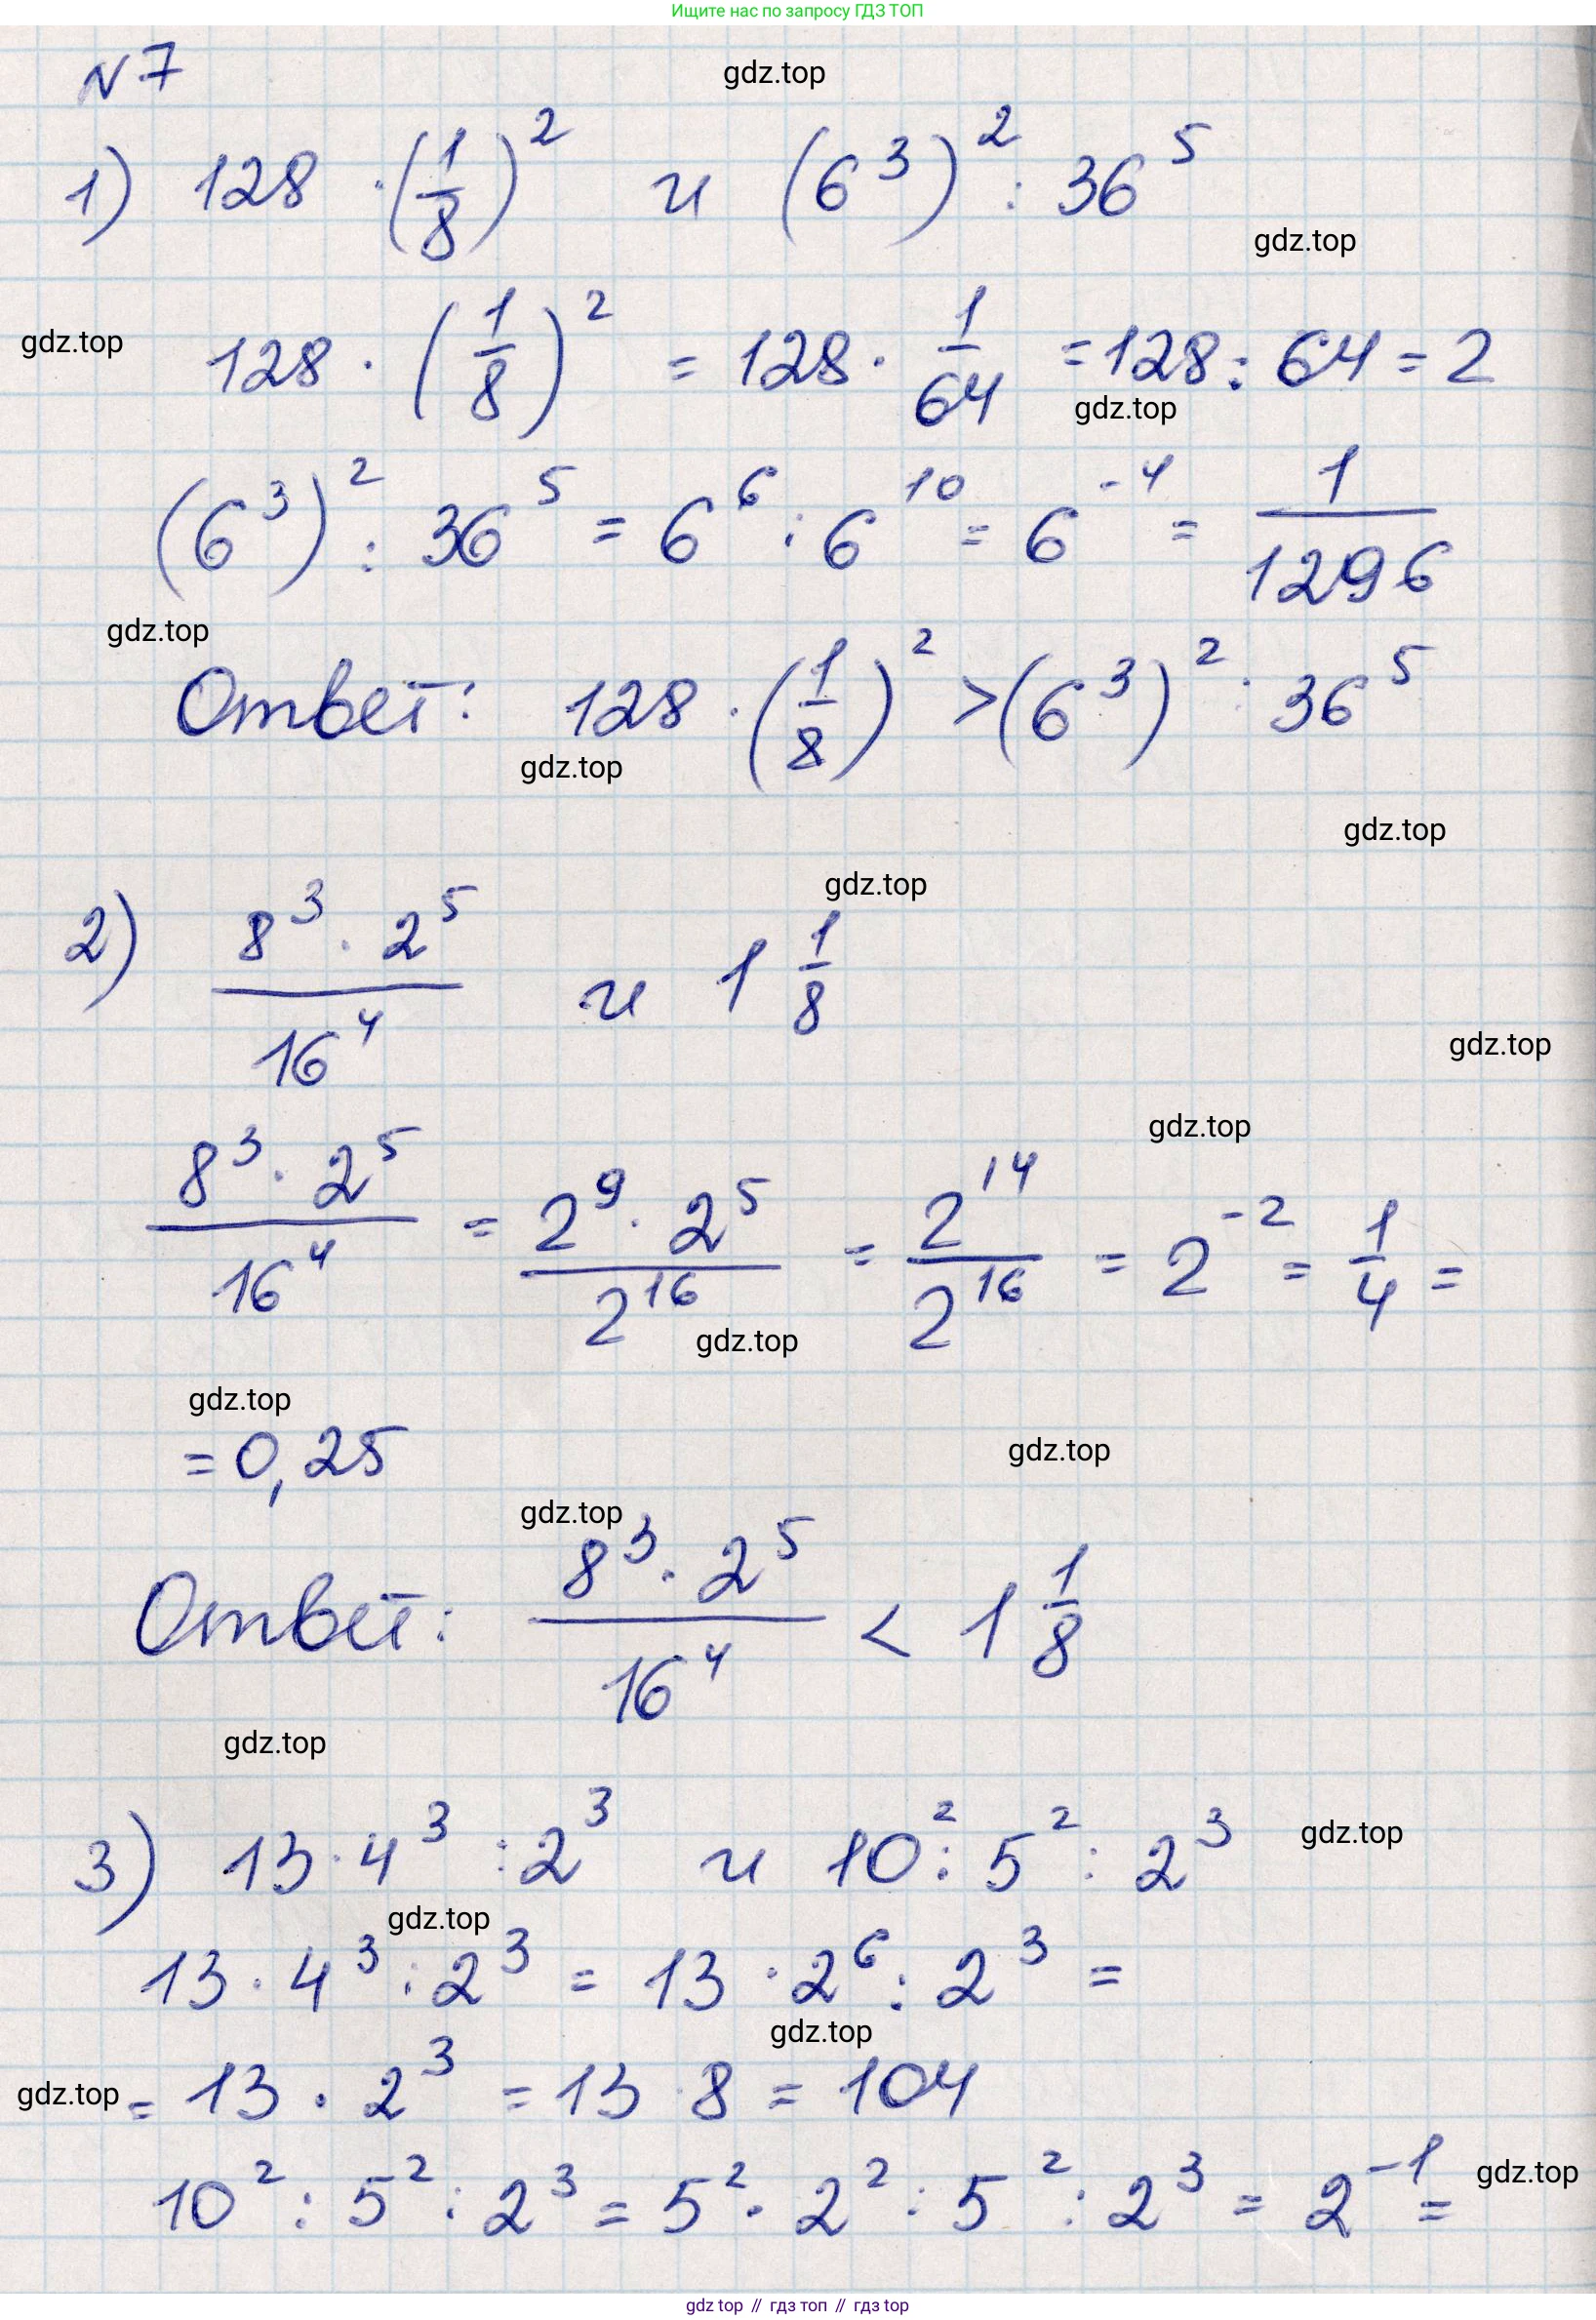 Ищите нас по запросу ГДЗ ТОП
N 7
gdz.top
1) 128 · (1/8)² и (6³)² : 36⁵
gdz.top
gdz.top
128 · (1/8)² = 128 · 1/64 = 128 : 64 = 2
gdz.top
(6³)² : 36⁵ = 6⁶ : 6¹⁰ = 6⁻⁴ = 1/1296
gdz.top
Ответ: 128 · (1/8)² > (6³)² : 36⁵
gdz.top
gdz.top
gdz.top
2) 8³ · 2⁵ / 16⁴ и 1 1/8
gdz.top
gdz.top
8³ · 2⁵ / 16⁴ = 2⁹ · 2⁵ / 2¹⁶ = 2¹⁴ / 2¹⁶ = 2⁻² = 1/4 =
gdz.top
gdz.top
= 0,25
gdz.top
gdz.top
Ответ: 8³ · 2⁵ / 16⁴ < 1 1/8
gdz.top
3) 13 · 4³ : 2³ и 10² : 5² : 2³
gdz.top
gdz.top
13 · 4³ : 2³ = 13 · 2⁶ : 2³ =
gdz.top
gdz.top
= 13 · 2³ = 13 · 8 = 104
10² : 5² : 2³ = 5² · 2² : 5² : 2³ = 2⁻¹ =
gdz.top
gdz top // гдз топ // гдз top